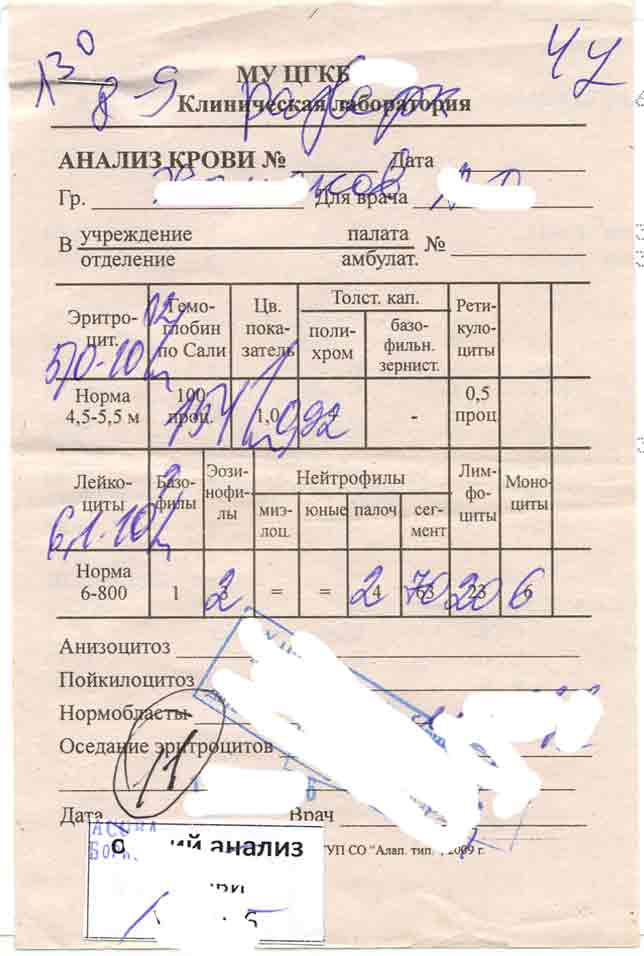 13⁰
8-9
Ч У
МУ ЦГКБ
Клиническая лаборатория
АНАЛИЗ КРОВИ № Дата
Гр. Для врача
В учреждение палата №
отделение амбулат.
Эритро-цит. Гемо-глобин по Сали Цв. пока-затель Толст. кап. поли-хром базо-фильн. зернист. Рети-куло-циты
5,0·10¹²/л
Норма 4,5-5,5 м 100 проц. 1,0 - 0,5 проц
154 г/л 0,92
Лейко-циты Базо-филы Эози-нофи-лы Нейтрофилы миэ-лоц. юные палоч сег-мент Лим-фо-циты Моно-циты
6,1·10⁹/л
Норма 6-800 1 3 = = 4 63 23 6
2 2 70 20 6
Анизоцитоз
Пойкилоцитоз
Нормобласты
Оседание эритроцитов
11
Дата Врач
ГУП СО "Алап. тип." 2009 г.
анализ